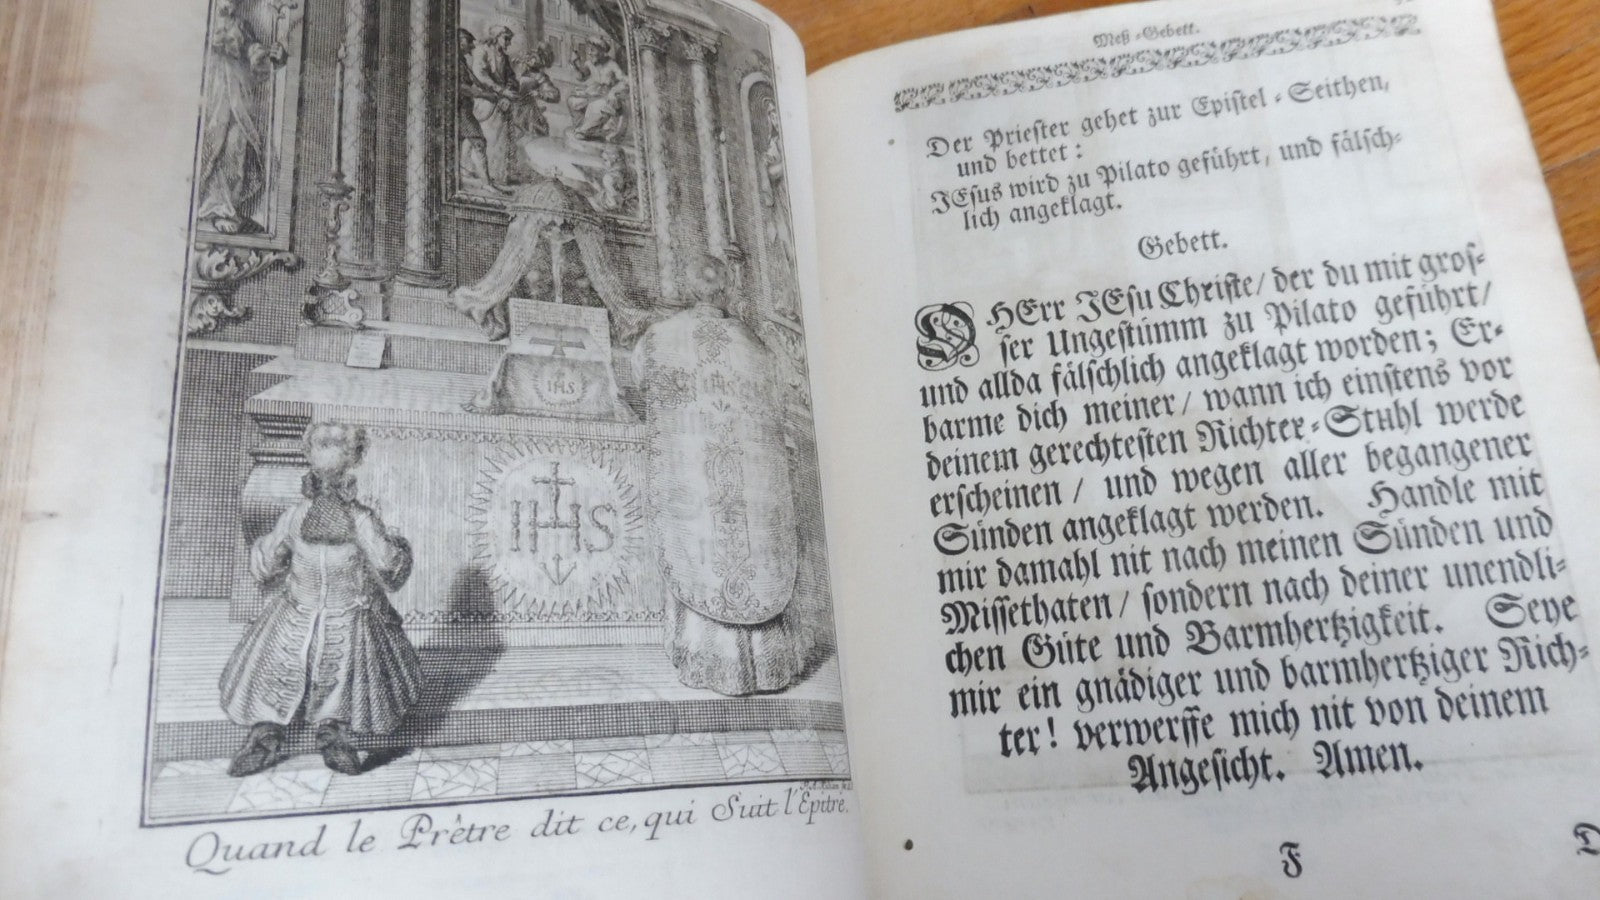 IHS
IHS
IHS
Quand le Prêtre dit ce, qui Suit l'Epitre.
Meß-Gebett.
Der Priester gehet zur Epistel-Seithen,
und bettet:
JEsus wird zu Pilato geführt, und fälsch-
lich angeklagt.
Gebett.
O HErr JEsu Christe/ der du mit gros-
ser Ungestümm zu Pilato geführt/
und allda fälschlich angeklagt worden; Er-
barme dich meiner/ wann ich einstens vor
deinem gerechtesten Richter-Stuhl werde
erscheinen/ und wegen aller begangener
Sünden angeklagt werden. Handle mit
mir damahl nit nach meinen Sünden und
Missethaten/ sondern nach deiner unendli-
chen Güte und Barmhertzigkeit. Seye
mir ein gnädiger und barmhertziger Rich-
ter! verwerffe mich nit von deinem
Angesicht. Amen.
F